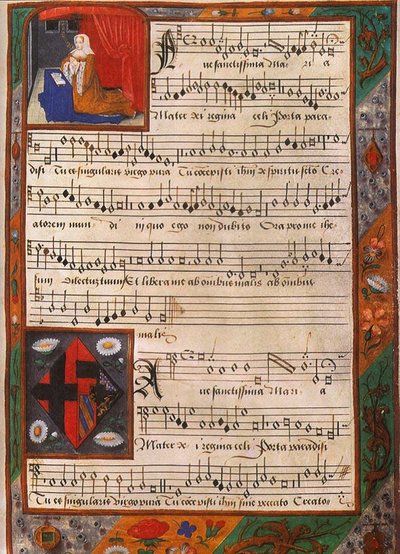 Ave sanctissima Mari a
Mater dei regina celi Porta para
disi Tu es singularis virgo pura Tu cocepisti ihm de spiritu scto Cre
atorem mun di in quo ego non dubito Ora pro me ihe
sum dilectum Et libera me ab omibus malis ab omibus
malis
Ave sanctissima Mari a
Mater de i regina celi Porta paradisi
Tu es singularis virgo pura Tu cocepisti ihm sine peccato Creato